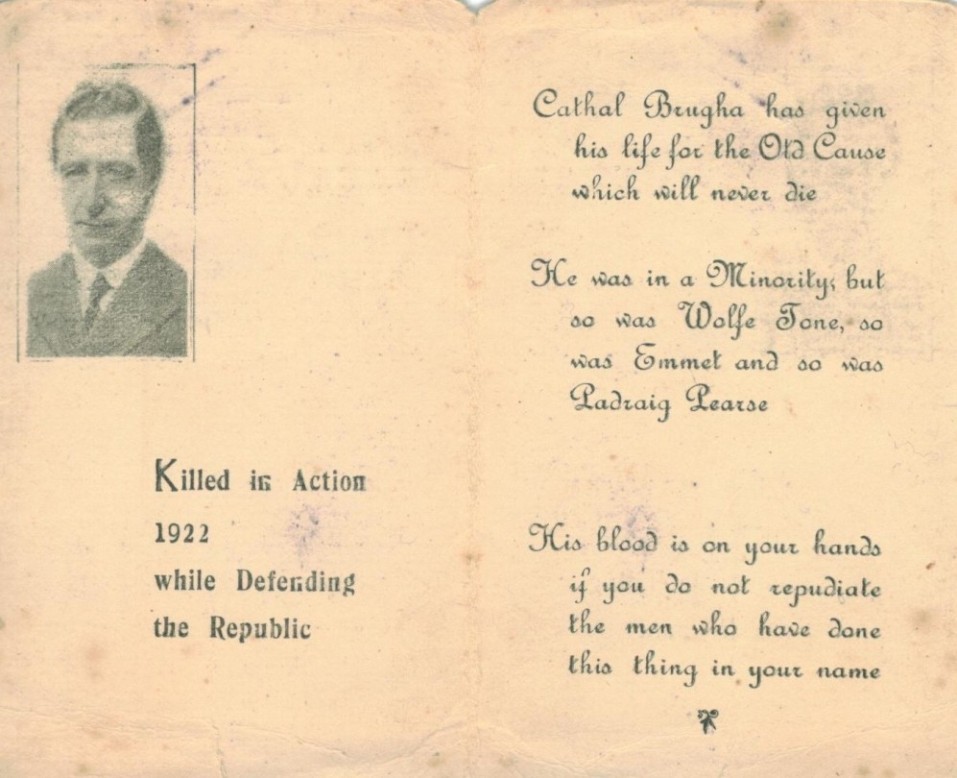 Killed in Action
1922
while Defending
the Republic
Cathal Brugha has given
his life for the Old Cause
which will never die
He was in a Minority; but
so was Wolfe Tone, so
was Emmet and so was
Padraig Pearse
His blood is on your hands
if you do not repudiate
the men who have done
this thing in your name